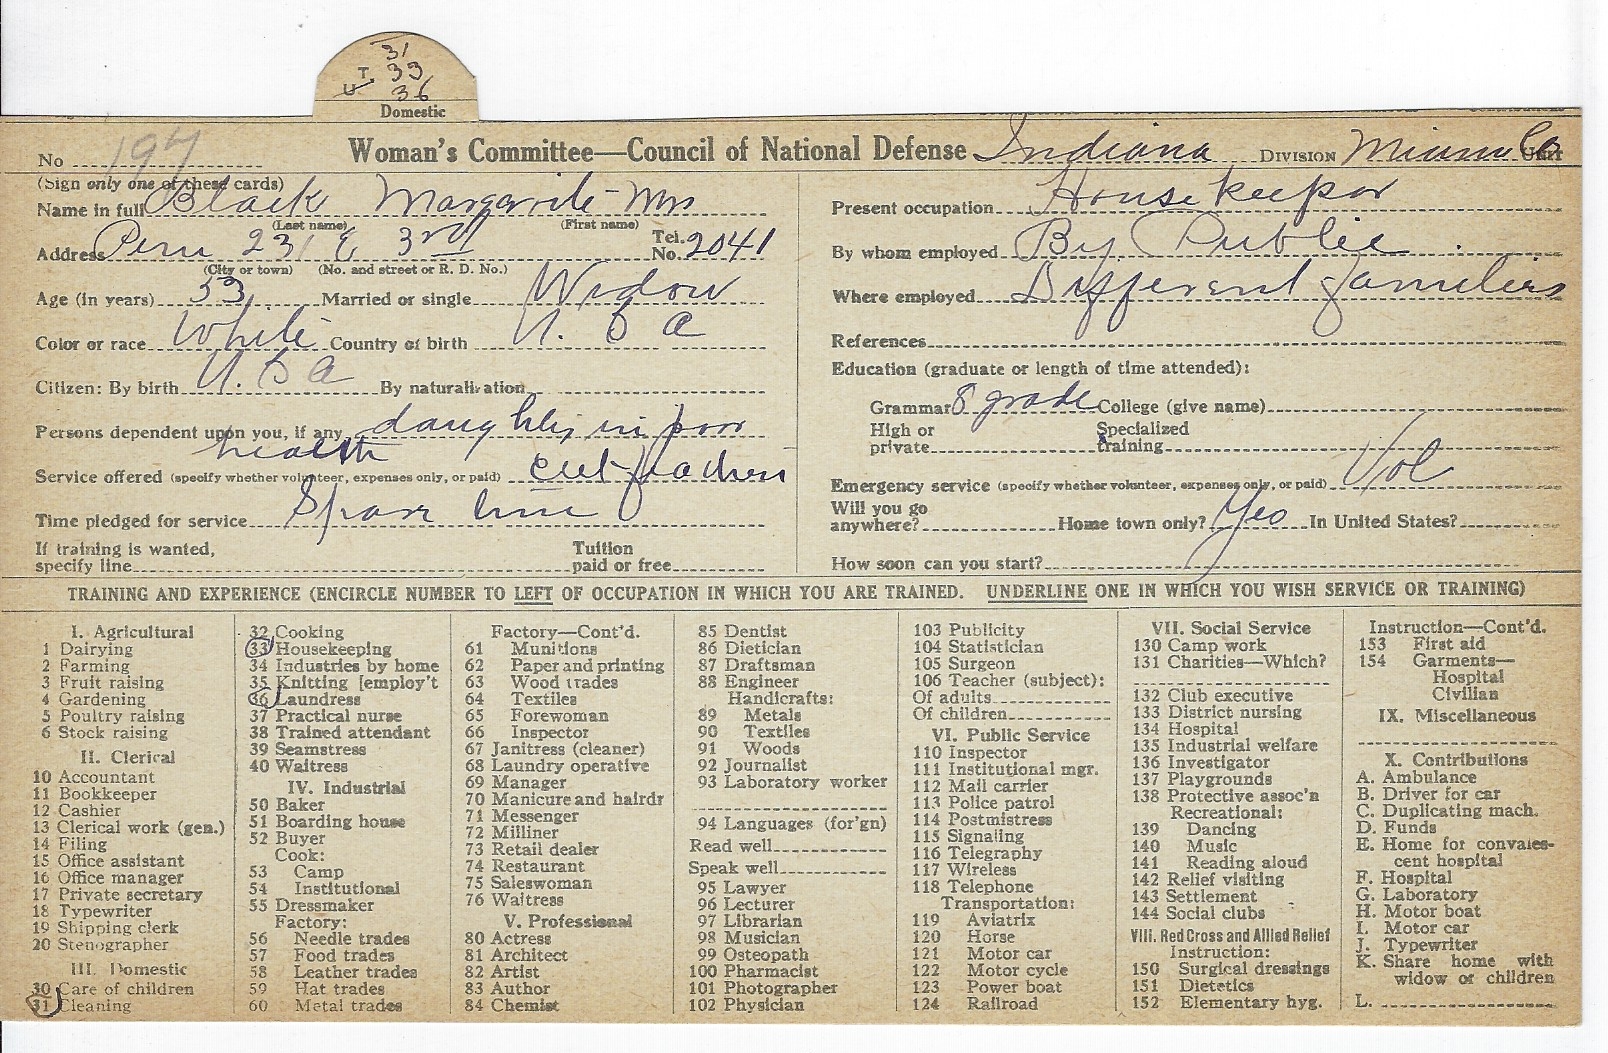 31
T. 33
U 36
Domestic
No 197 Woman's Committee—Council of National Defense Indiana DIVISION Miami Co UNIT
(Sign only one of these cards)
Name in full Black Margarite Mrs
(Last name) (First name)
Address Peru 231 E 3rd Tel. No. 2041
(City or town) (No. and street or R. D. No.)
Age (in years) 53 Married or single Widow
Color or race White Country of birth U. S A
Citizen: By birth U. S A By naturalization
Persons dependent upon you, if any, daughter in poor
health
Service offered (specify whether volunteer, expenses only, or paid)
Time pledged for service Spare time
If training is wanted,
specify line
Tuition
paid or free
Present occupation Housekeeper
By whom employed By Public
Where employed Different families
References
Education (graduate or length of time attended):
Grammar 8 grade College (give name)
High or
private
Specialized
training
Emergency service (specify whether volunteer, expenses only, or paid) Vol
Will you go
anywhere? Home town only? Yes In United States?
How soon can you start?
TRAINING AND EXPERIENCE (ENCIRCLE NUMBER TO LEFT OF OCCUPATION IN WHICH YOU ARE TRAINED. UNDERLINE ONE IN WHICH YOU WISH SERVICE OR TRAINING)
I. Agricultural
1 Dairying
2 Farming
3 Fruit raising
4 Gardening
5 Poultry raising
6 Stock raising
II. Clerical
10 Accountant
11 Bookkeeper
12 Cashier
13 Clerical work (gen.)
14 Filing
15 Office assistant
16 Office manager
17 Private secretary
18 Typewriter
19 Shipping clerk
20 Stenographer
III. Domestic
30 Care of children
31 Cleaning
32 Cooking
33 Housekeeping
34 Industries by home
35 Knitting [employ't
36 Laundress
37 Practical nurse
38 Trained attendant
39 Seamstress
40 Waitress
IV. Industrial
50 Baker
51 Boarding house
52 Buyer
Cook:
53 Camp
54 Institutional
55 Dressmaker
Factory:
56 Needle trades
57 Food trades
58 Leather trades
59 Hat trades
60 Metal trades
Factory—Cont'd.
61 Munitions
62 Paper and printing
63 Wood trades
64 Textiles
65 Forewoman
66 Inspector
67 Janitress (cleaner)
68 Laundry operative
69 Manager
70 Manicure and hairdr
71 Messenger
72 Milliner
73 Retail dealer
74 Restaurant
75 Saleswoman
76 Waitress
V. Professional
80 Actress
81 Architect
82 Artist
83 Author
84 Chemist
85 Dentist
86 Dietician
87 Draftsman
88 Engineer
Handicrafts:
89 Metals
90 Textiles
91 Woods
92 Journalist
93 Laboratory worker
94 Languages (for'gn)
Read well
Speak well
95 Lawyer
96 Lecturer
97 Librarian
98 Musician
99 Osteopath
100 Pharmacist
101 Photographer
102 Physician
103 Publicity
104 Statistician
105 Surgeon
106 Teacher (subject):
Of adults
Of children
VI. Public Service
110 Inspector
111 Institutional mgr.
112 Mail carrier
113 Police patrol
114 Postmistress
115 Signaling
116 Telegraphy
117 Wireless
118 Telephone
Transportation:
119 Aviatrix
120 Horse
121 Motor car
122 Motor cycle
123 Power boat
124 Railroad
VII. Social Service
130 Camp work
131 Charities—Which?
132 Club executive
133 District nursing
134 Hospital
135 Industrial welfare
136 Investigator
137 Playgrounds
138 Protective assoc'n
Recreational:
139 Dancing
140 Music
141 Reading aloud
142 Relief visiting
143 Settlement
144 Social clubs
VIII. Red Cross and Allied Relief
Instruction:
150 Surgical dressings
151 Dietetics
152 Elementary hyg.
Instruction—Cont'd.
153 First aid
154 Garments—
Hospital
Civilian
IX. Miscellaneous
X. Contributions
A. Ambulance
B. Driver for car
C. Duplicating mach.
D. Funds
E. Home for convales-
cent hospital
F. Hospital
G. Laboratory
H. Motor boat
I. Motor car
J. Typewriter
K. Share home with
widow or children
L.